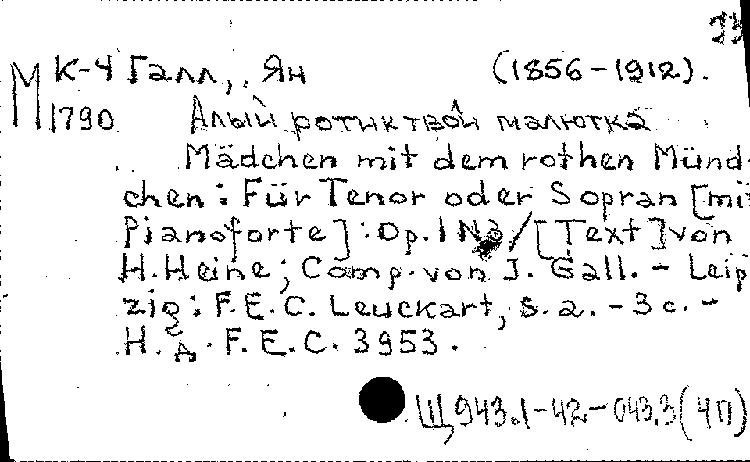 33
К-4 Галл, Ян (1856-1912).
М
1790
Алый ротик твой малютка
Mädchen mit dem rothen Münd-
chen: Für Tenor oder Sopran [mi
Pianoforte]: Op.1 N3 / [Text] von
H. Heine; Comp. von J. Gall. - Leip
zig: F.E.C. Leuckart, s.a. - 3 c. -
Н.д. F.E.C. 3953.
Щ943.1-42-043.3(4П)